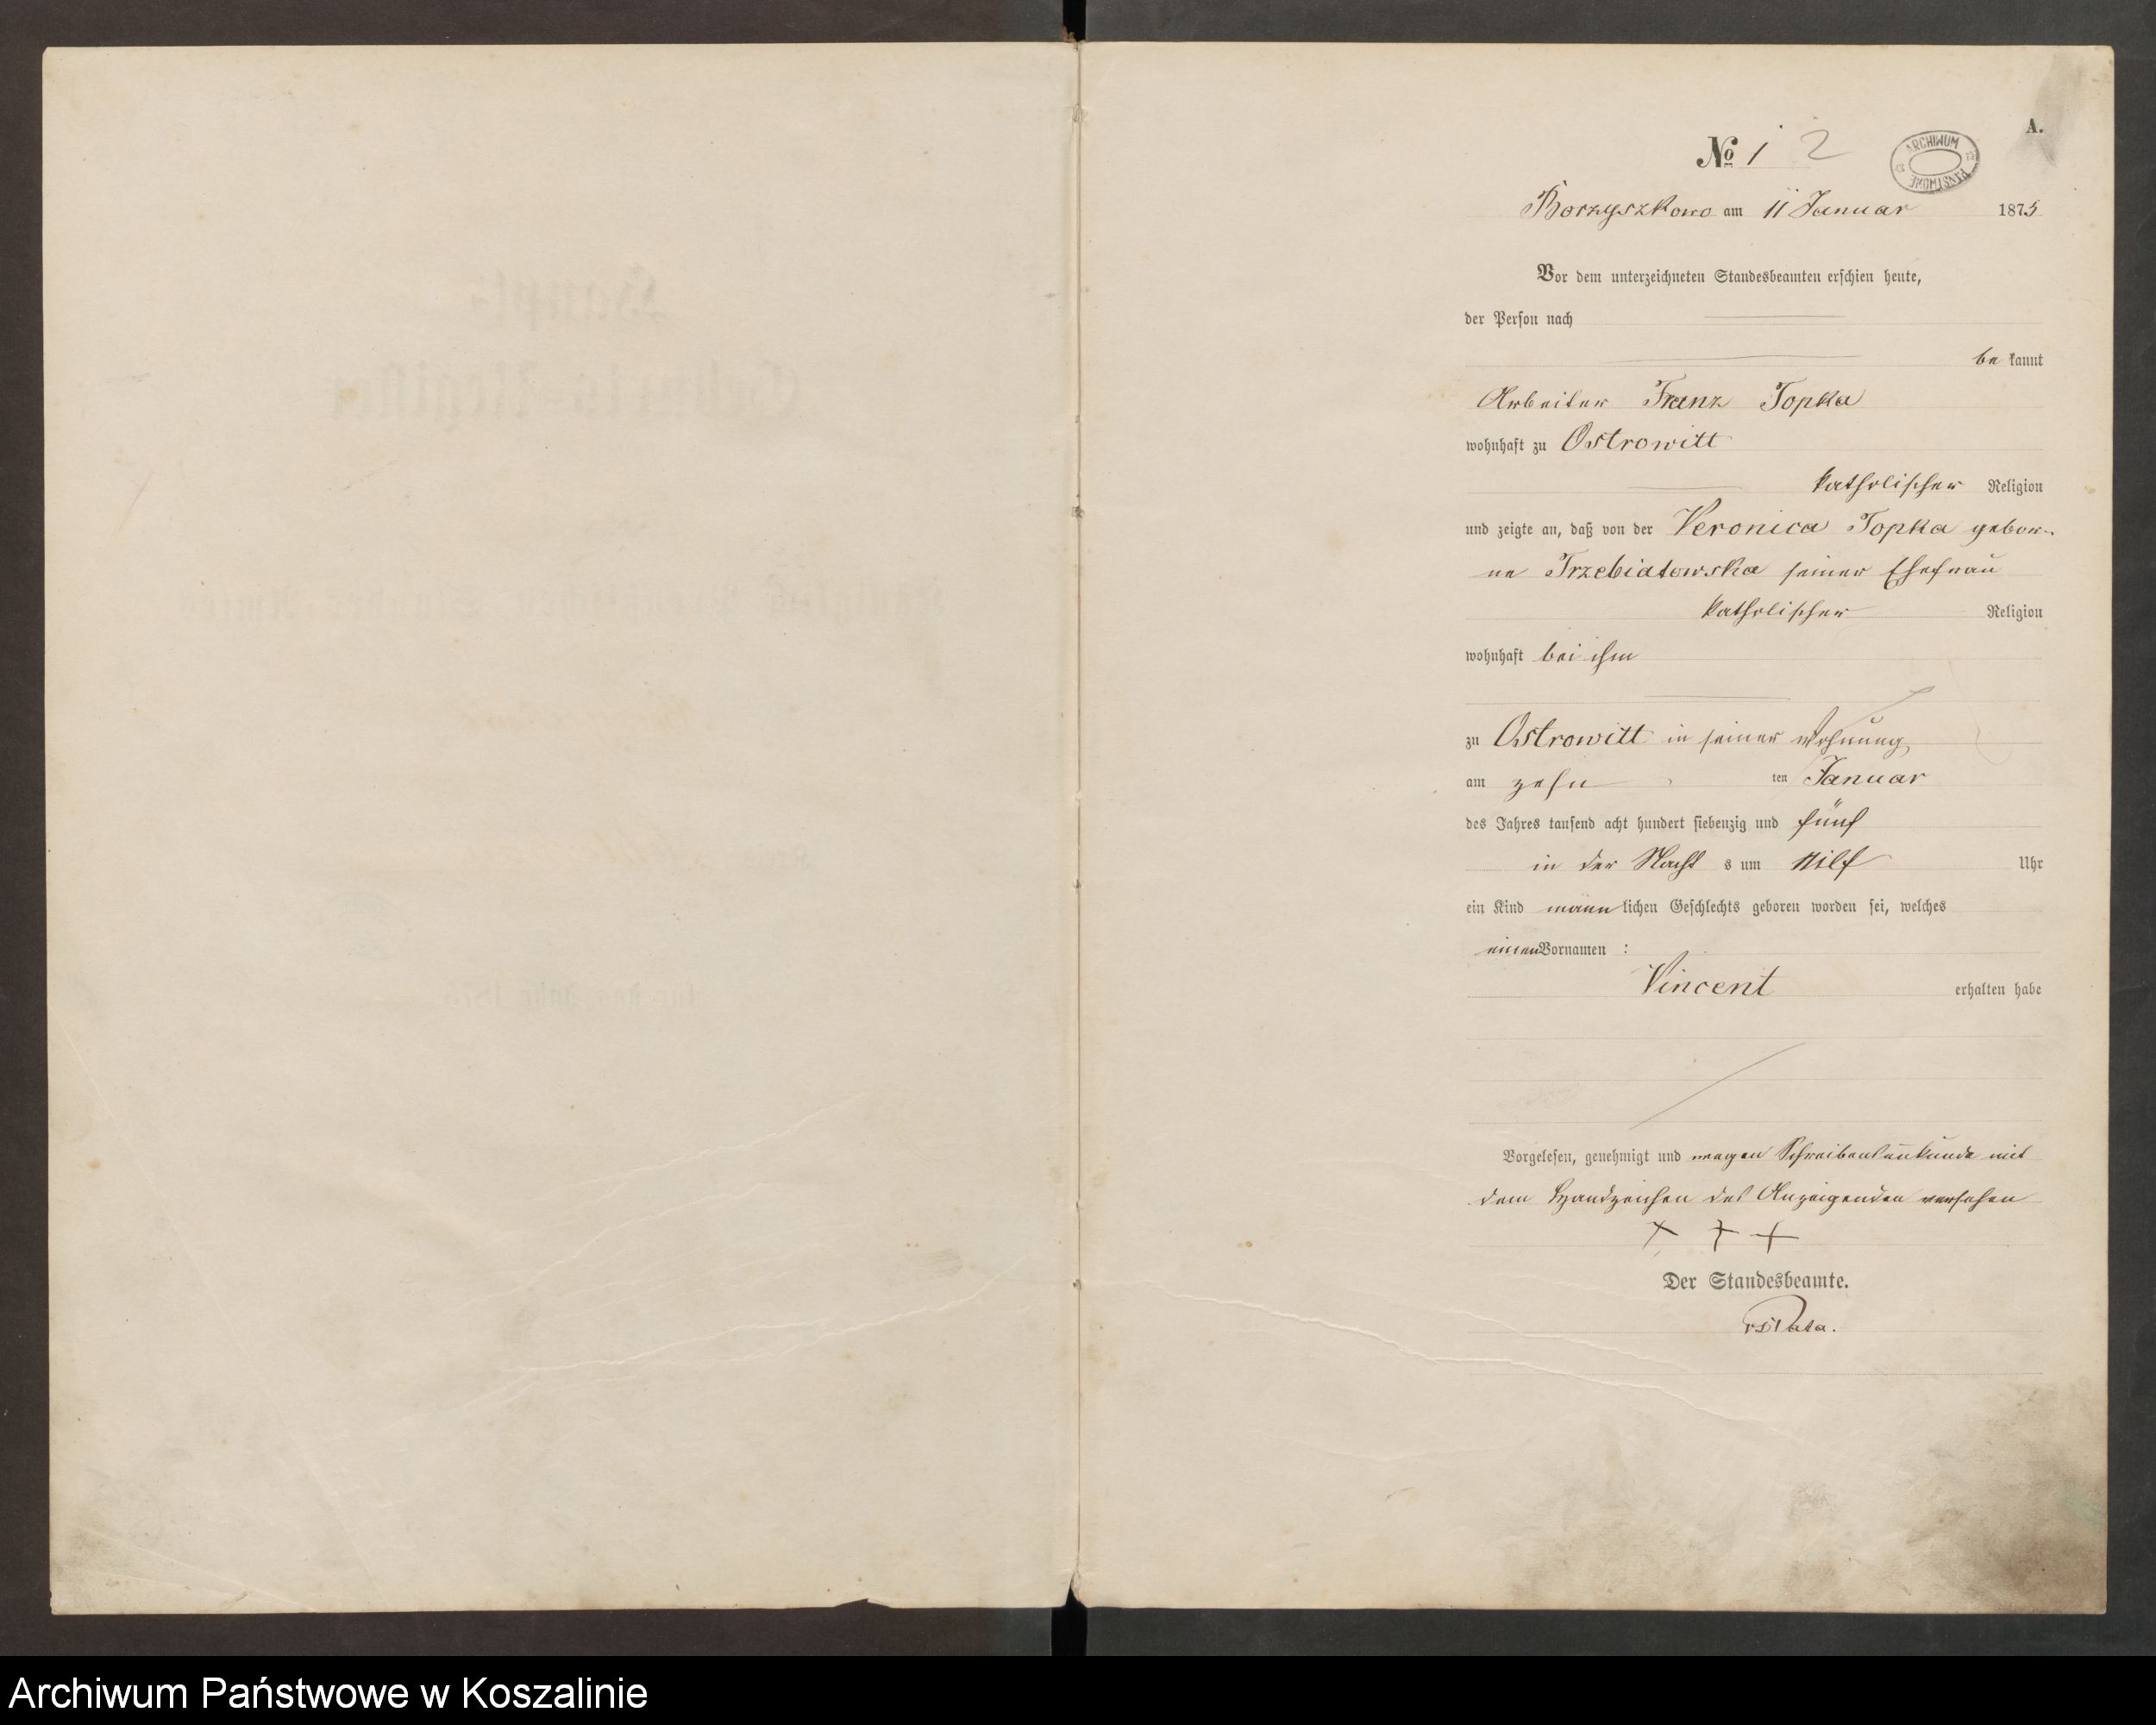 A.
№ 1 2
ARCHIWUM PAŃSTWOWE
Borzyszkowo am 11 Januar 1875
Vor dem unterzeichneten Standesbeamten erschien heute,
der Person nach
be kannt
Arbeiter Franz Topka
wohnhaft zu Ostrowitt
katholischer Religion
und zeigte an, daß von der Veronica Topka gebor-
ne Trzebiatowska seiner Ehefrau
katholischer Religion
wohnhaft bei ihm
zu Ostrowitt in seiner Wohnung
am zehn ten Januar
des Jahres tausend acht hundert siebenzig und fünf
in der Nacht s um Uhr
ein Kind männ lichen Geschlechts geboren worden sei, welches
einen Vornamen :
Vincent erhalten habe
Vorgelesen, genehmigt und wegen Schreibensunkunde mit
dem Handzeichen des Anzeigenden versehen
+ + +
Der Standesbeamte.
Archiwum Państwowe w Koszalinie